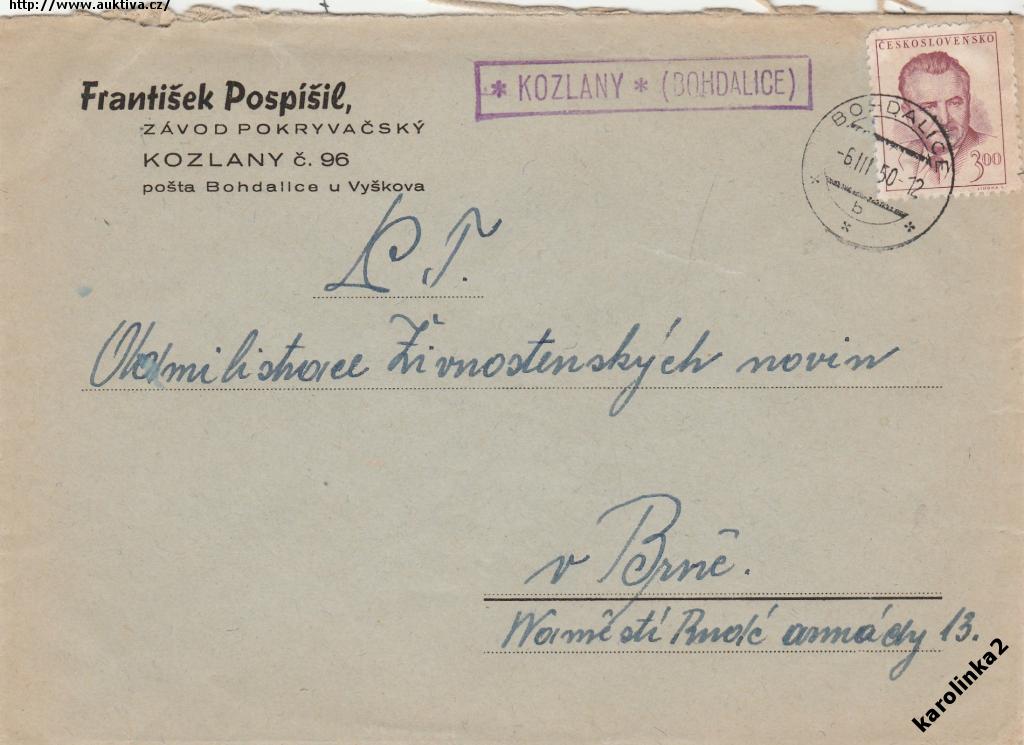 http://www.auktiva.cz/
František Pospíšil,
ZÁVOD POKRYVAČSKÝ
KOZLANY č. 96
pošta Bohdalice u Vyškova
* KOZLANY * (BOHDALICE)
ČESKOSLOVENSKO
3.00
BOHDALICE
-6.III 50-12
b
P. T.
Admilistrace Živnostenských novin
v Brně.
Náměstí Rudé armády 13.
karolinka2